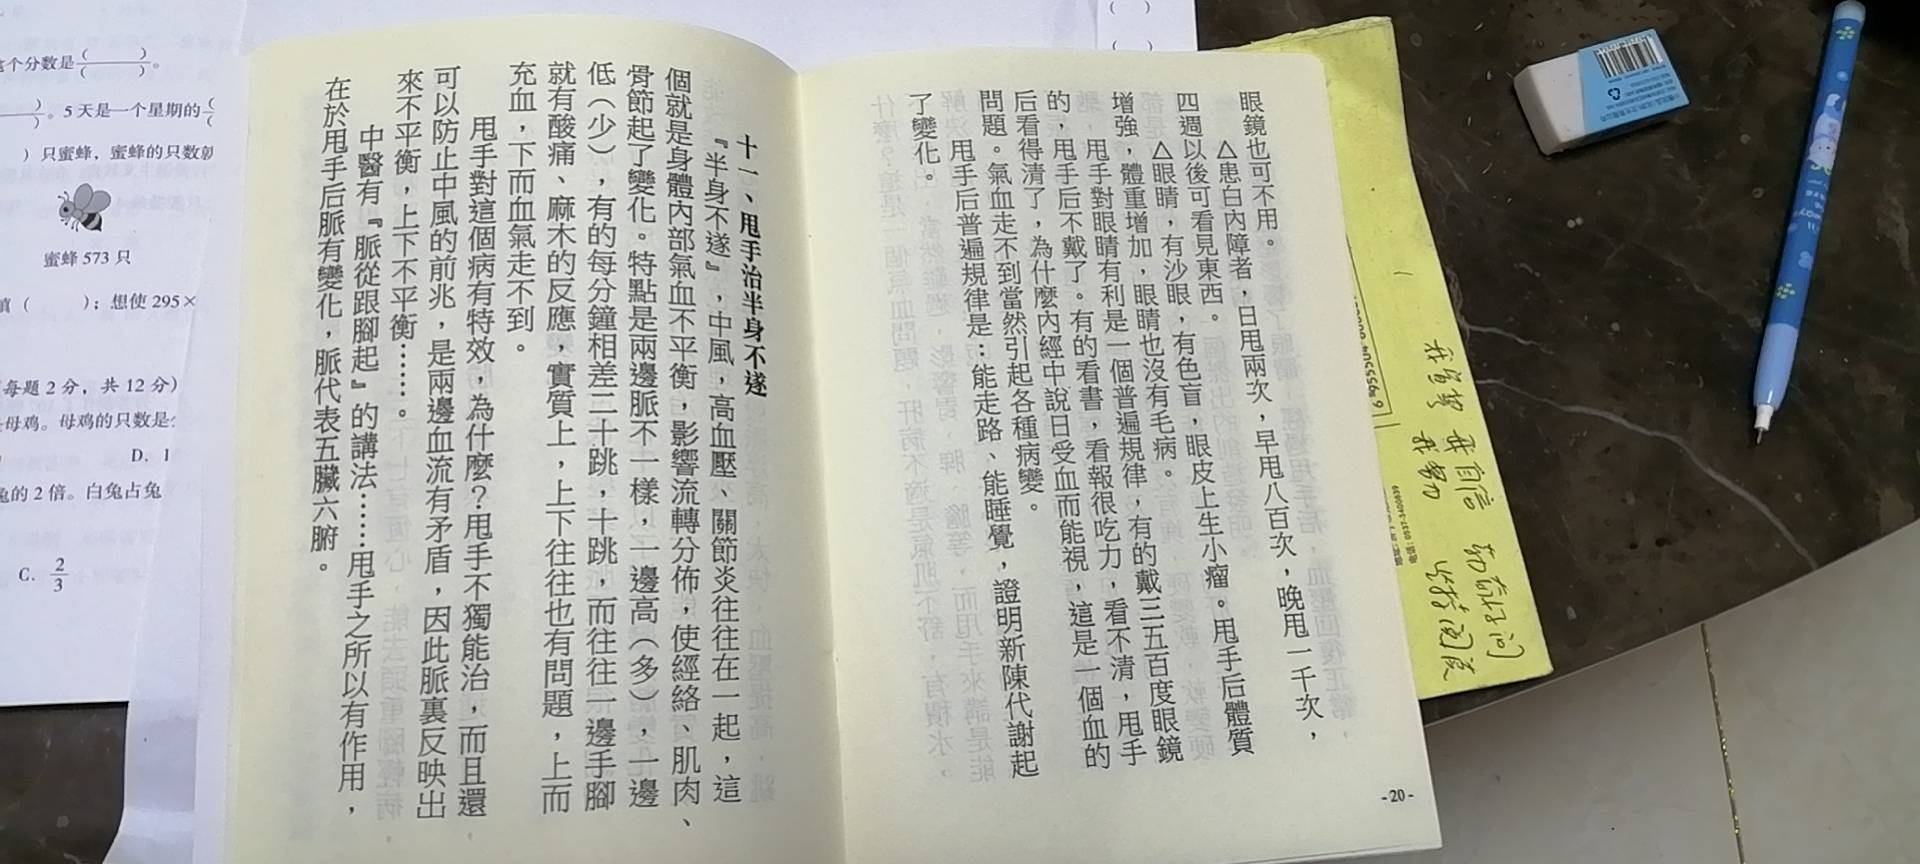 眼鏡也可不用。
△患白內障者，日甩兩次，早甩八百次，晚甩一千次，
四週以後可看見東西。
△眼睛，有沙眼，有色盲，眼皮上生小瘤。甩手后體質
增強，體重增加，眼睛也沒有毛病。
甩手對眼睛有利是一個普遍規律，有的戴三五百度眼鏡
的，甩手后不戴了。有的看書，看報很吃力，看不清，甩手
后看得清了，為什麼內經中說日受血而能視，這是一個血的
問題。氣血走不到當然引起各種病變。
甩手后普遍規律是：能走路、能睡覺，證明新陳代謝起
了變化。
-20-
十一、甩手治半身不遂
『半身不遂』，中風，高血壓、關節炎往往在一起，這
個就是身體內部氣血不平衡，影響流轉分佈，使經絡、肌肉、
骨節起了變化。特點是兩邊脈不一樣，一邊高（多），一邊
低（少），有的每分鐘相差二十跳，十跳，而往往一邊手腳
就有酸痛、麻木的反應，實質上，上下往往也有問題，上而
充血，下而血氣走不到。
甩手對這個病有特效，為什麼？甩手不獨能治，而且還
可以防止中風的前兆，是兩邊血流有矛盾，因此脈裏反映出
來不平衡，上下不平衡……。
中醫有『脈從跟腳起』的講法……甩手之所以有作用，
在於甩手后脈有變化，脈代表五臟六腑。
这个分数是( )
( )。
)。5天是一个星期的(
)只蜜蜂，蜜蜂的只数
蜜蜂 573 只
填（ ）；想使 295×
每题 2 分，共 12 分）
母鸡。母鸡的只数是
D. 1
兔的 2 倍。白兔占兔
C. 2/3
我自信